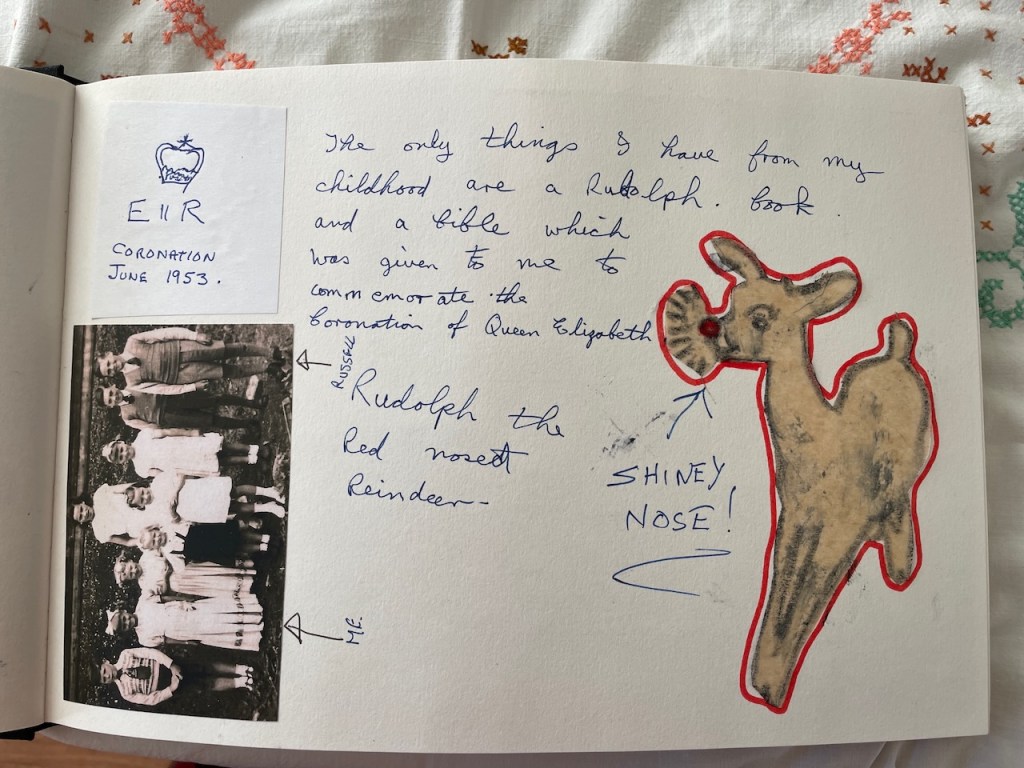 E II R
CORONATION
JUNE 1953.
The only things I have from my
childhood are a Rudolph. book.
and a bible which
was given to me to
commemorate the
Coronation of Queen Elizabeth
RUSSELL
Rudolph the
Red nosed
Reindeer-
SHINEY
NOSE!
ME.